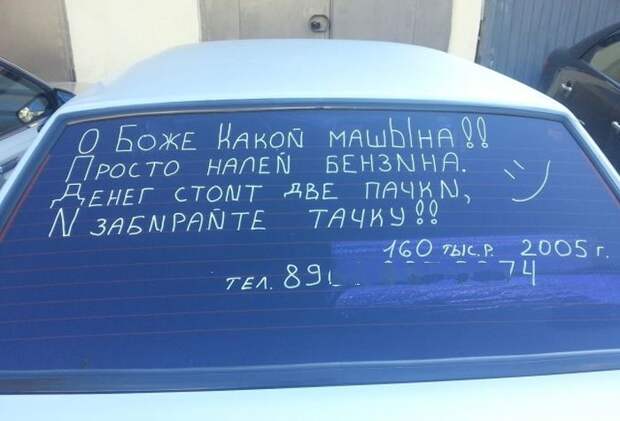 О Боже какой машЫна!!
Просто налей бензина.
Денег стоит две пачки,
И забирайте тачку!!
160 тыс.р. 2005 г.
тел. 89 74